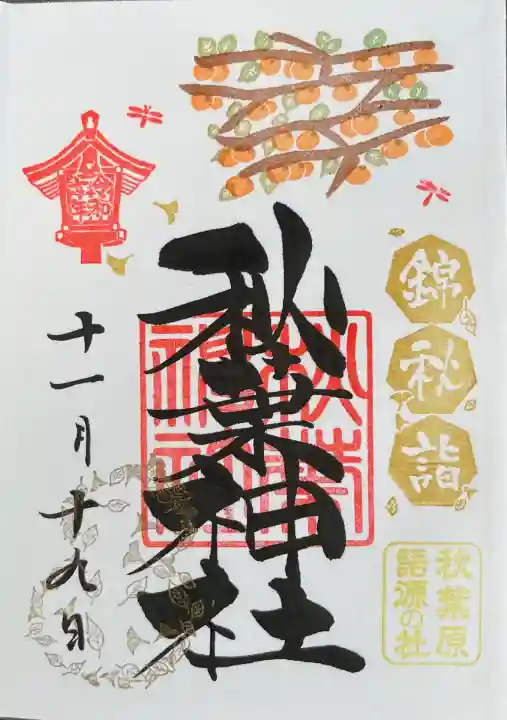 錦秋詣
秋葉原
語源の社
秋葉神社
秋葉
神社
十一月十九日